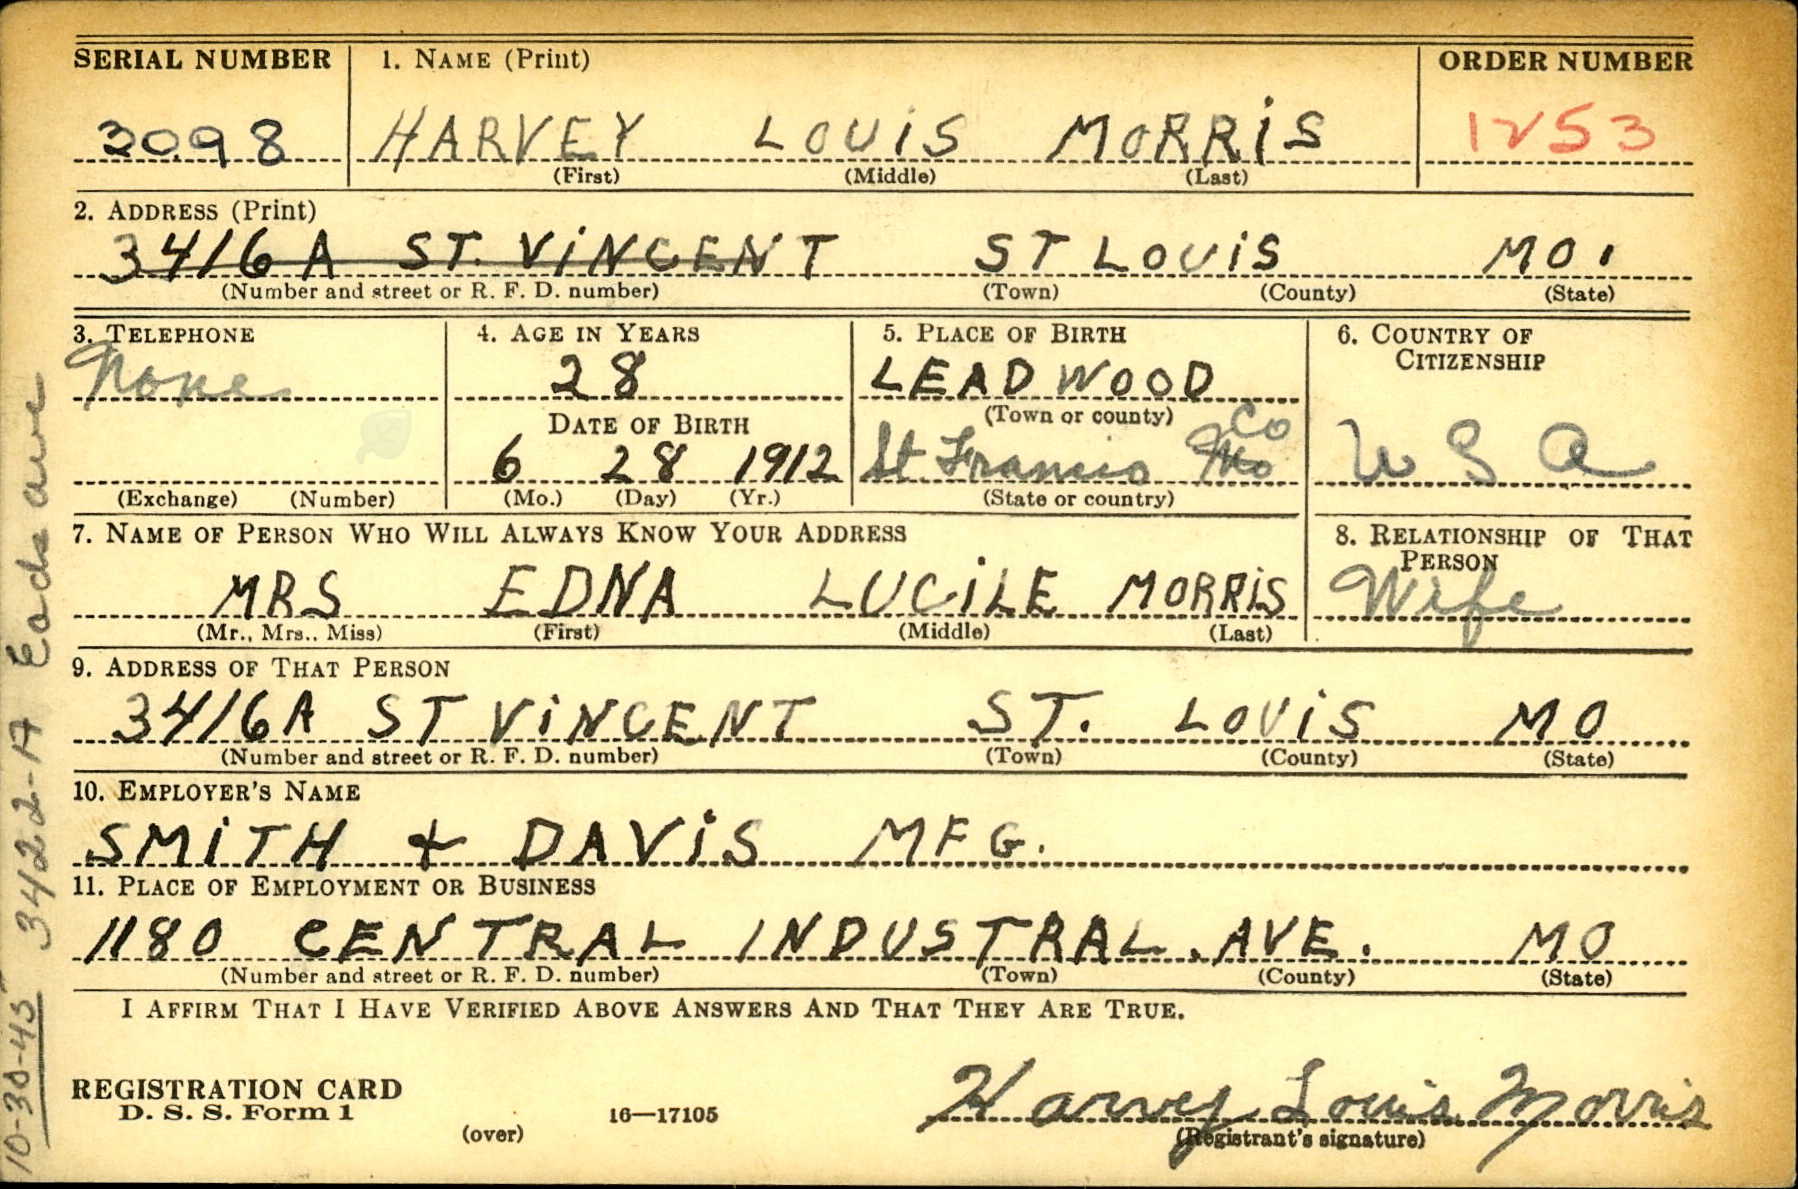 SERIAL NUMBER 1. NAME (Print) ORDER NUMBER
3098 HARVEY LOUIS MORRIS 1253
(First) (Middle) (Last)
2. ADDRESS (Print)
3416A ST. VINCENT ST LOUIS MO.
(Number and street or R. F. D. number) (Town) (County) (State)
3. TELEPHONE 4. AGE IN YEARS 5. PLACE OF BIRTH 6. COUNTRY OF CITIZENSHIP
None 28 LEADWOOD
DATE OF BIRTH (Town or county)
6 28 1912 St. Francis Co Mo U S A
(Exchange) (Number) (Mo.) (Day) (Yr.) (State or country)
7. NAME OF PERSON WHO WILL ALWAYS KNOW YOUR ADDRESS 8. RELATIONSHIP OF THAT PERSON
MRS EDNA LUCILE MORRIS Wife
(Mr., Mrs., Miss) (First) (Middle) (Last)
9. ADDRESS OF THAT PERSON
3416A ST VINCENT ST. LOUIS MO
(Number and street or R. F. D. number) (Town) (County) (State)
10. EMPLOYER'S NAME
SMITH & DAVIS MFG.
11. PLACE OF EMPLOYMENT OR BUSINESS
1180 CENTRAL INDUSTRAL. AVE. MO
(Number and street or R. F. D. number) (Town) (County) (State)
I AFFIRM THAT I HAVE VERIFIED ABOVE ANSWERS AND THAT THEY ARE TRUE.
REGISTRATION CARD
D. S. S. Form 1
(over) 16—17105
Harvey Louis Morris
(Registrant's signature)
10-30-45 3422-A Eads ave